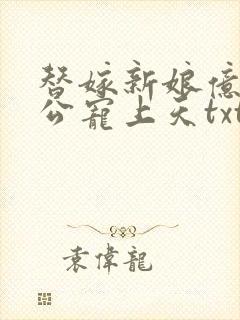 替嫁新娘億
公寵上天txt
袁偉龍